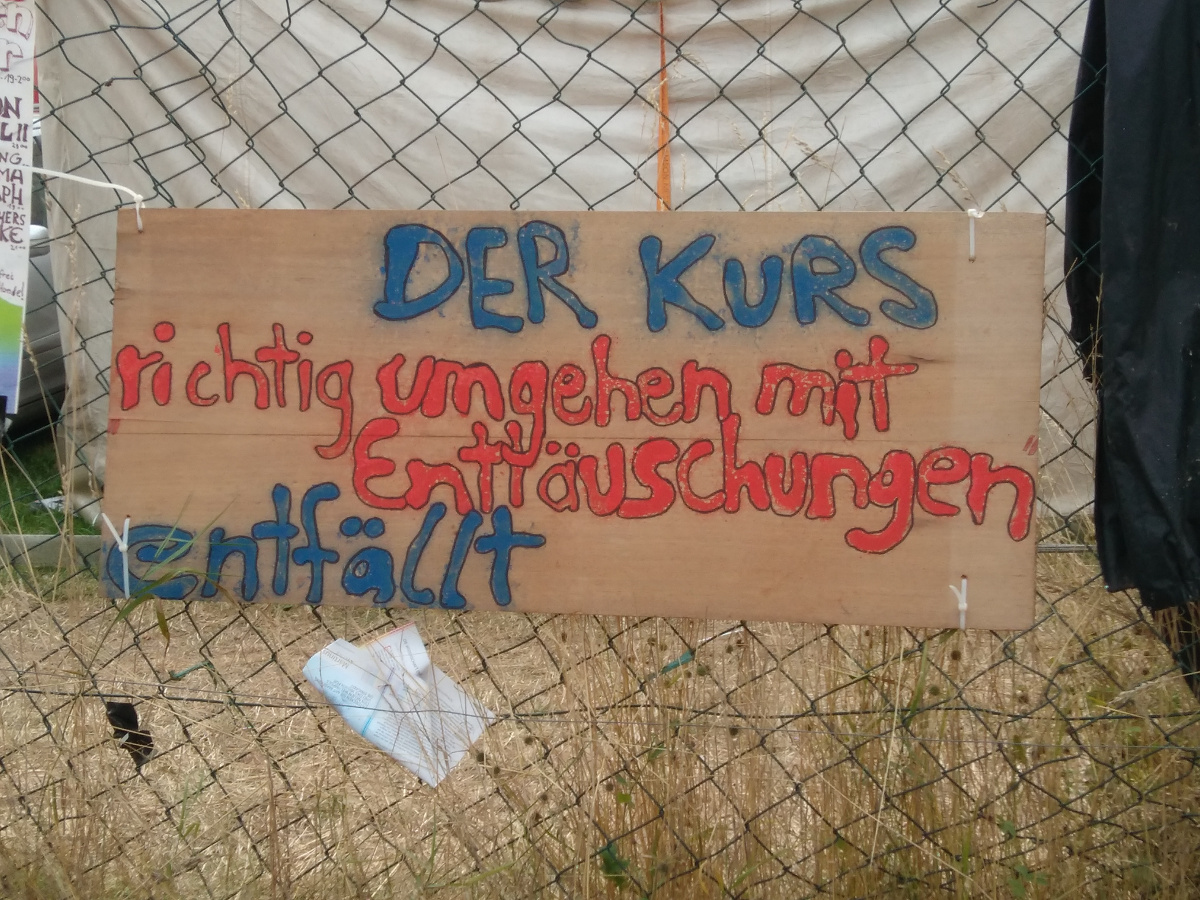 DER KURS
richtig umgehen mit
Enttäuschungen
entfällt